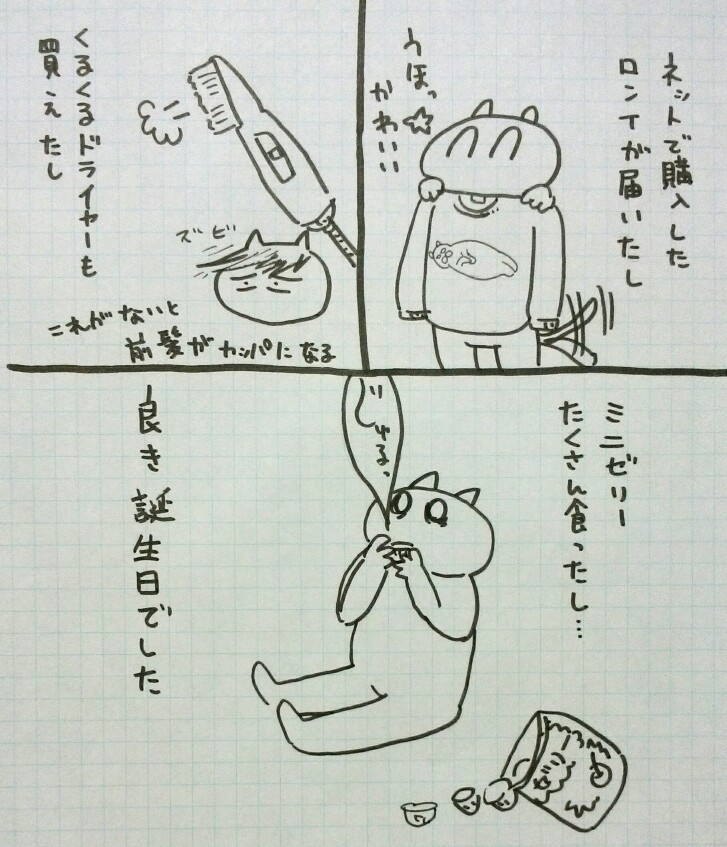 ネットで購入した
ロンTが届いたし
うほっ☆
かわいい
くるくるドライヤーも
買えたし
ズビ
これがないと
前髪がカッパになる
ミニゼリー
たくさん食ったし…
じゅるっ
良き誕生日でした